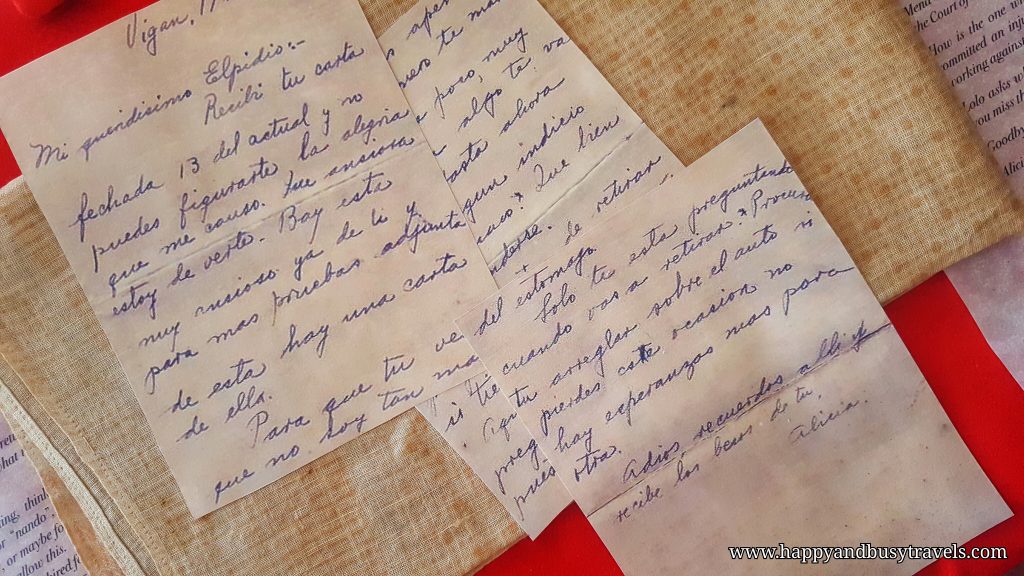 Vigan,
Mi queridisimo Elpidio:-
Recibi tu carta
fechada 13 del actual y no
puedes figurarte la alegria
que me causo. Que ansiosa
estoy de verte. Bay esta
muy ansioso ya de ti y
para mas pruebas adjunta
de esta hay una carta
de ella.
Para que tu ve
que no soy tan ma
te ma
poco, muy
algo te
carta ahora va
gun indicio
Que bien
de retirar
del estomago
Lolo te esta preguntando
cuando vas a retirar. Procura
tu arreglar sobre el auto si
pierdes esta ocasion no
hay esperanzas mas para
otra.
Adios, recuerdos alli y
recibe los besos de tu,
Alicia.
ir tu
Aqu
preg
pues
Menu
the Court of
How is the one wh
committed an inj
working agains
Lolo asks w
you miss th
Goodby
Alici
ng, think
r "nando",
, or maybe fo
allow this.
bired f
www.happyandbusytravels.com